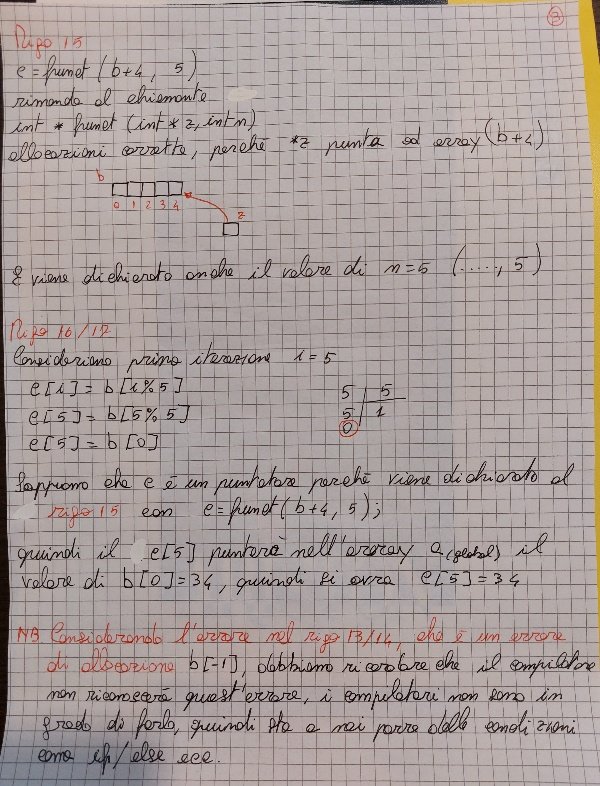 3
Rigo 15
c = funct (b+4, 5)
rimando al chiamante
int * funct (int * z, int n)
allocazioni corrette, perché *z punta ad array (b+4)
b
0 1 2 3 4
z
E viene dichiarato anche il valore di n=5 (...., 5)
Rigo 16/17
Consideriamo prima iterazione i = 5
c[i] = b[i%5]
c[5] = b[5%5]
c[5] = b[0]
5 5
5 1
0
Sappiamo che c è un puntatore perché viene dichiarato al
rigo 15 con c = funct (b+4, 5);
quindi il c[5] punterà nell'array a (global) il
valore di b[0] = 34, quindi si avrà c[5] = 34
NB Considerando l'errore nel rigo 13/14, che è un errore
di allocazione b[-1], dobbiamo ricordare che il compilatore
non riconoscerà quest'errore, i compilatori non sono in
grado di farlo, quindi sta a noi porre delle condizioni
come if/else ecc.